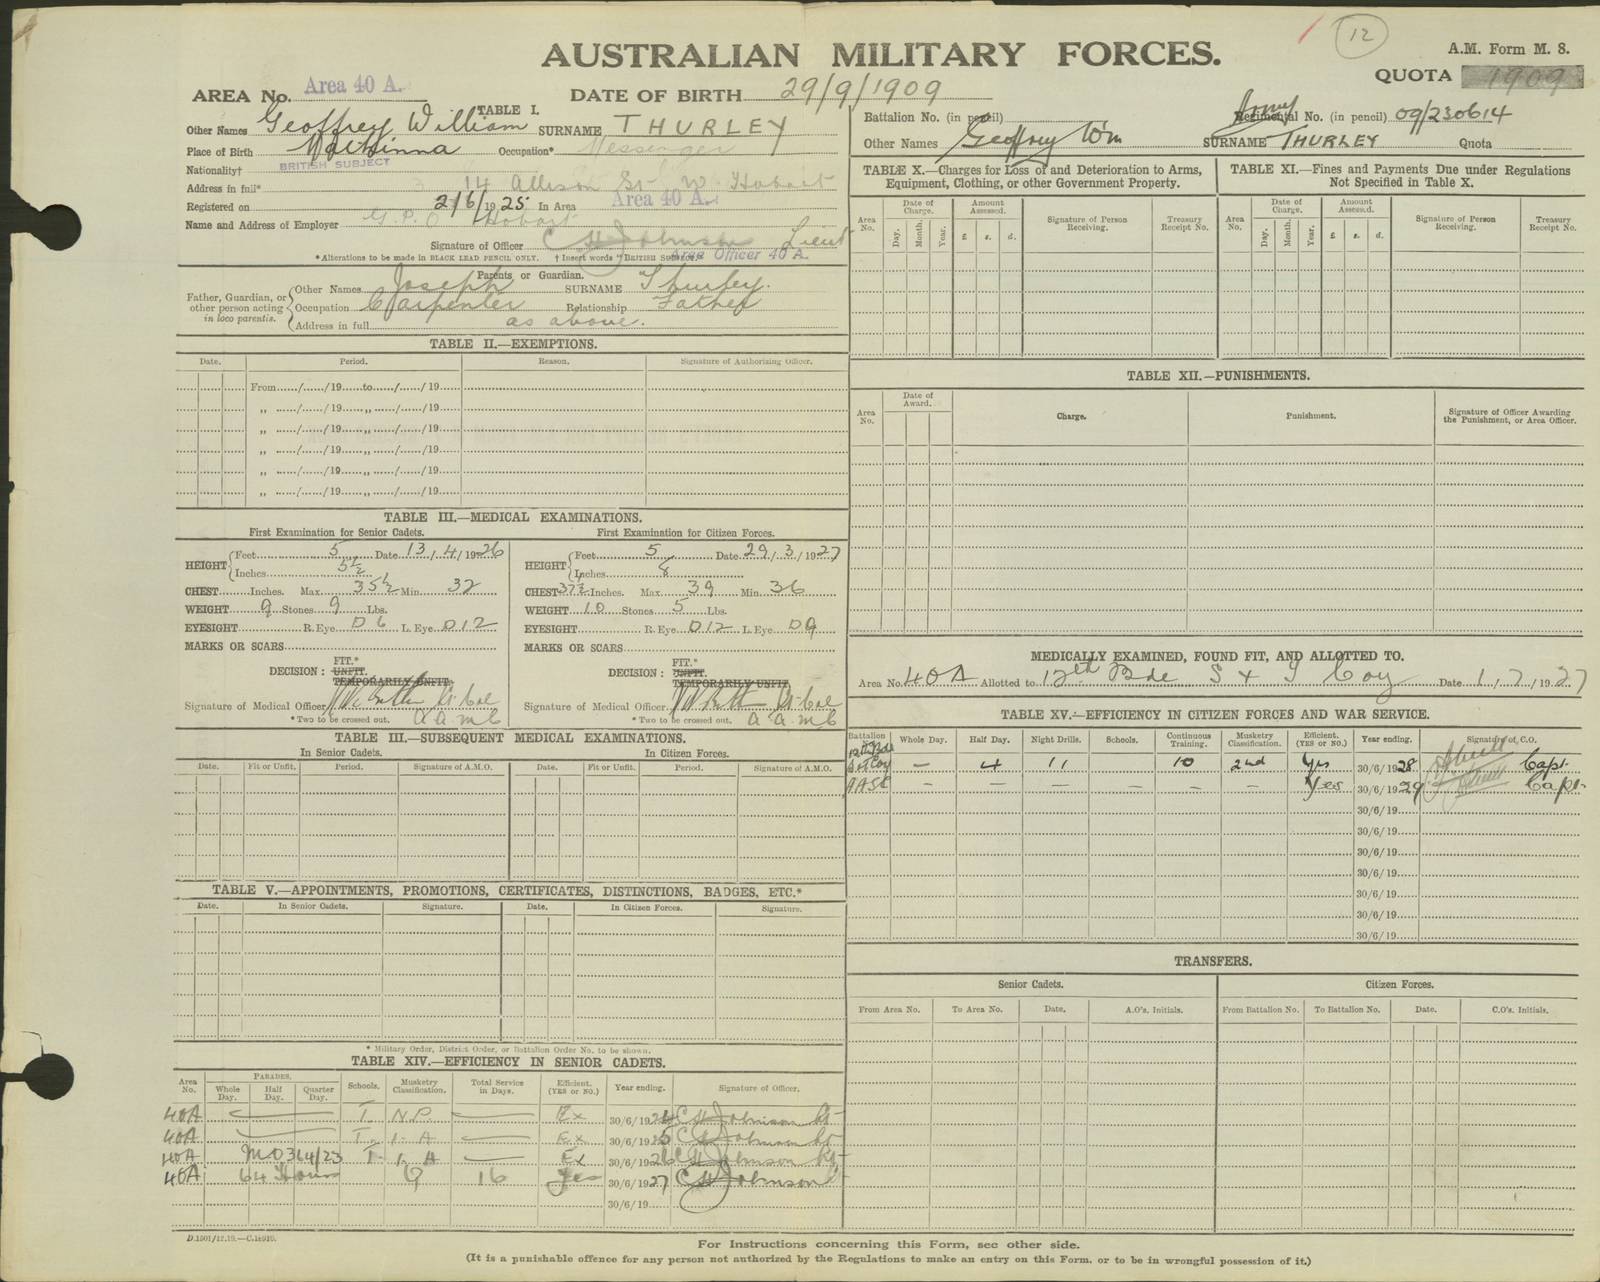 12
AUSTRALIAN MILITARY FORCES.
A.M. Form M. 8.
QUOTA 1909
AREA No. Area 40 A.
DATE OF BIRTH 29/9/1909
TABLE I.
Other Names Geoffrey William SURNAME THURLEY
Place of Birth Mathinna Occupation* Messenger
Nationality† BRITISH SUBJECT
Address in full* 14 Allison St W. Hobart
Registered on 2/6/1925 In Area Area 40 A.
Name and Address of Employer G.P.O Hobart
Signature of Officer C H Johnson Lieut
*Alterations to be made in BLACK LEAD PENCIL ONLY. † Insert words "BRITISH SUBJECT" Area Officer 40 A.
Parents or Guardian.
Father, Guardian, or other person acting in loco parentis.
Other Names Joseph SURNAME Thurley.
Occupation Carpenter Relationship Father
Address in full as above.
TABLE II.—EXEMPTIONS.
Date. Period. Reason. Signature of Authorizing Officer.
From....../....../19......to....../....../19......
„ ....../....../19......„....../....../19......
„ ....../....../19......„....../....../19......
„ ....../....../19......„....../....../19......
„ ....../....../19......„....../....../19......
„ ....../....../19......„....../....../19......
TABLE III.—MEDICAL EXAMINATIONS.
First Examination for Senior Cadets.
HEIGHT Feet 5 Date 13/4/1926
Inches 5½
CHEST Inches. Max. 35½ Min. 32
WEIGHT 9 Stones 9 Lbs.
EYESIGHT R. Eye D 6 L. Eye D12
MARKS OR SCARS
DECISION : FIT.*
UNFIT.
TEMPORARILY UNFIT.
Signature of Medical Officer Lt Col
*Two to be crossed out. a a m c
First Examination for Citizen Forces.
HEIGHT Feet 5 Date 29/3/1927
Inches 8
CHEST 37½ Inches. Max. 39 Min. 36
WEIGHT 10 Stones 5 Lbs.
EYESIGHT R. Eye D12 L. Eye D9
MARKS OR SCARS
DECISION : FIT.*
UNFIT.
TEMPORARILY UNFIT.
Signature of Medical Officer Lt Col
*Two to be crossed out. a a m c
TABLE III.—SUBSEQUENT MEDICAL EXAMINATIONS.
In Senior Cadets. In Citizen Forces.
Date. Fit or Unfit. Period. Signature of A.M.O. Date. Fit or Unfit. Period. Signature of A.M.O.
TABLE V.—APPOINTMENTS, PROMOTIONS, CERTIFICATES, DISTINCTIONS, BADGES, ETC.*
Date. In Senior Cadets. Signature. Date. In Citizen Forces. Signature.
* Military Order, District Order, or Battalion Order No. to be shown.
TABLE XIV.—EFFICIENCY IN SENIOR CADETS.
Area No. PARADES. Whole Day. Half Day. Quarter Day. Schools. Musketry Classification. Total Service in Days. Efficient. (YES or NO.) Year ending. Signature of Officer.
40A T. N.P. — Ex 30/6/1924 C H Johnson Lt
40A T. I. A — Ex 30/6/1925 C H Johnson Lt
40A MO364/23 T. I. A — Ex 30/6/1926 C H Johnson Lt
40A 64 Hours Q 16 Yes 30/6/1927 C H Johnson Lt
30/6/19
D.1501/12.19.—C.18910.
Battalion No. (in pencil) Army Regimental No. (in pencil) 09/230614
Other Names Geoffrey Wm SURNAME THURLEY Quota
TABLE X.—Charges for Loss of and Deterioration to Arms, Equipment, Clothing, or other Government Property.
Area No. Date of Charge. Day. Month. Year. Amount Assessed. £ s. d. Signature of Person Receiving. Treasury Receipt No.
TABLE XI.—Fines and Payments Due under Regulations Not Specified in Table X.
Area No. Date of Charge. Day. Month. Year. Amount Assessed. £ s. d. Signature of Person Receiving. Treasury Receipt No.
TABLE XII.—PUNISHMENTS.
Area No. Date of Award. Charge. Punishment. Signature of Officer Awarding the Punishment, or Area Officer.
MEDICALLY EXAMINED, FOUND FIT, AND ALLOTTED TO.
Area No. 40A Allotted to 12th Bde S & T Coy Date 1/7/1927
TABLE XV.—EFFICIENCY IN CITIZEN FORCES AND WAR SERVICE.
Battalion No. Whole Day. Half Day. Night Drills. Schools. Continuous Training. Musketry Classification. Efficient. (YES or NO.) Year ending. Signature of C.O.
12th Bde S&T Coy — 4 11 10 2nd Yes 30/6/1928 Capt.
AASC — — — — — — Yes 30/6/1929 Capt.
30/6/19
30/6/19
30/6/19
30/6/19
30/6/19
30/6/19
30/6/19
TRANSFERS.
Senior Cadets. Citizen Forces.
From Area No. To Area No. Date. A.O's. Initials. From Battalion No. To Battalion No. Date. C.O's. Initials.
For Instructions concerning this Form, see other side.
(It is a punishable offence for any person not authorized by the Regulations to make an entry on this Form, or to be in wrongful possession of it.)